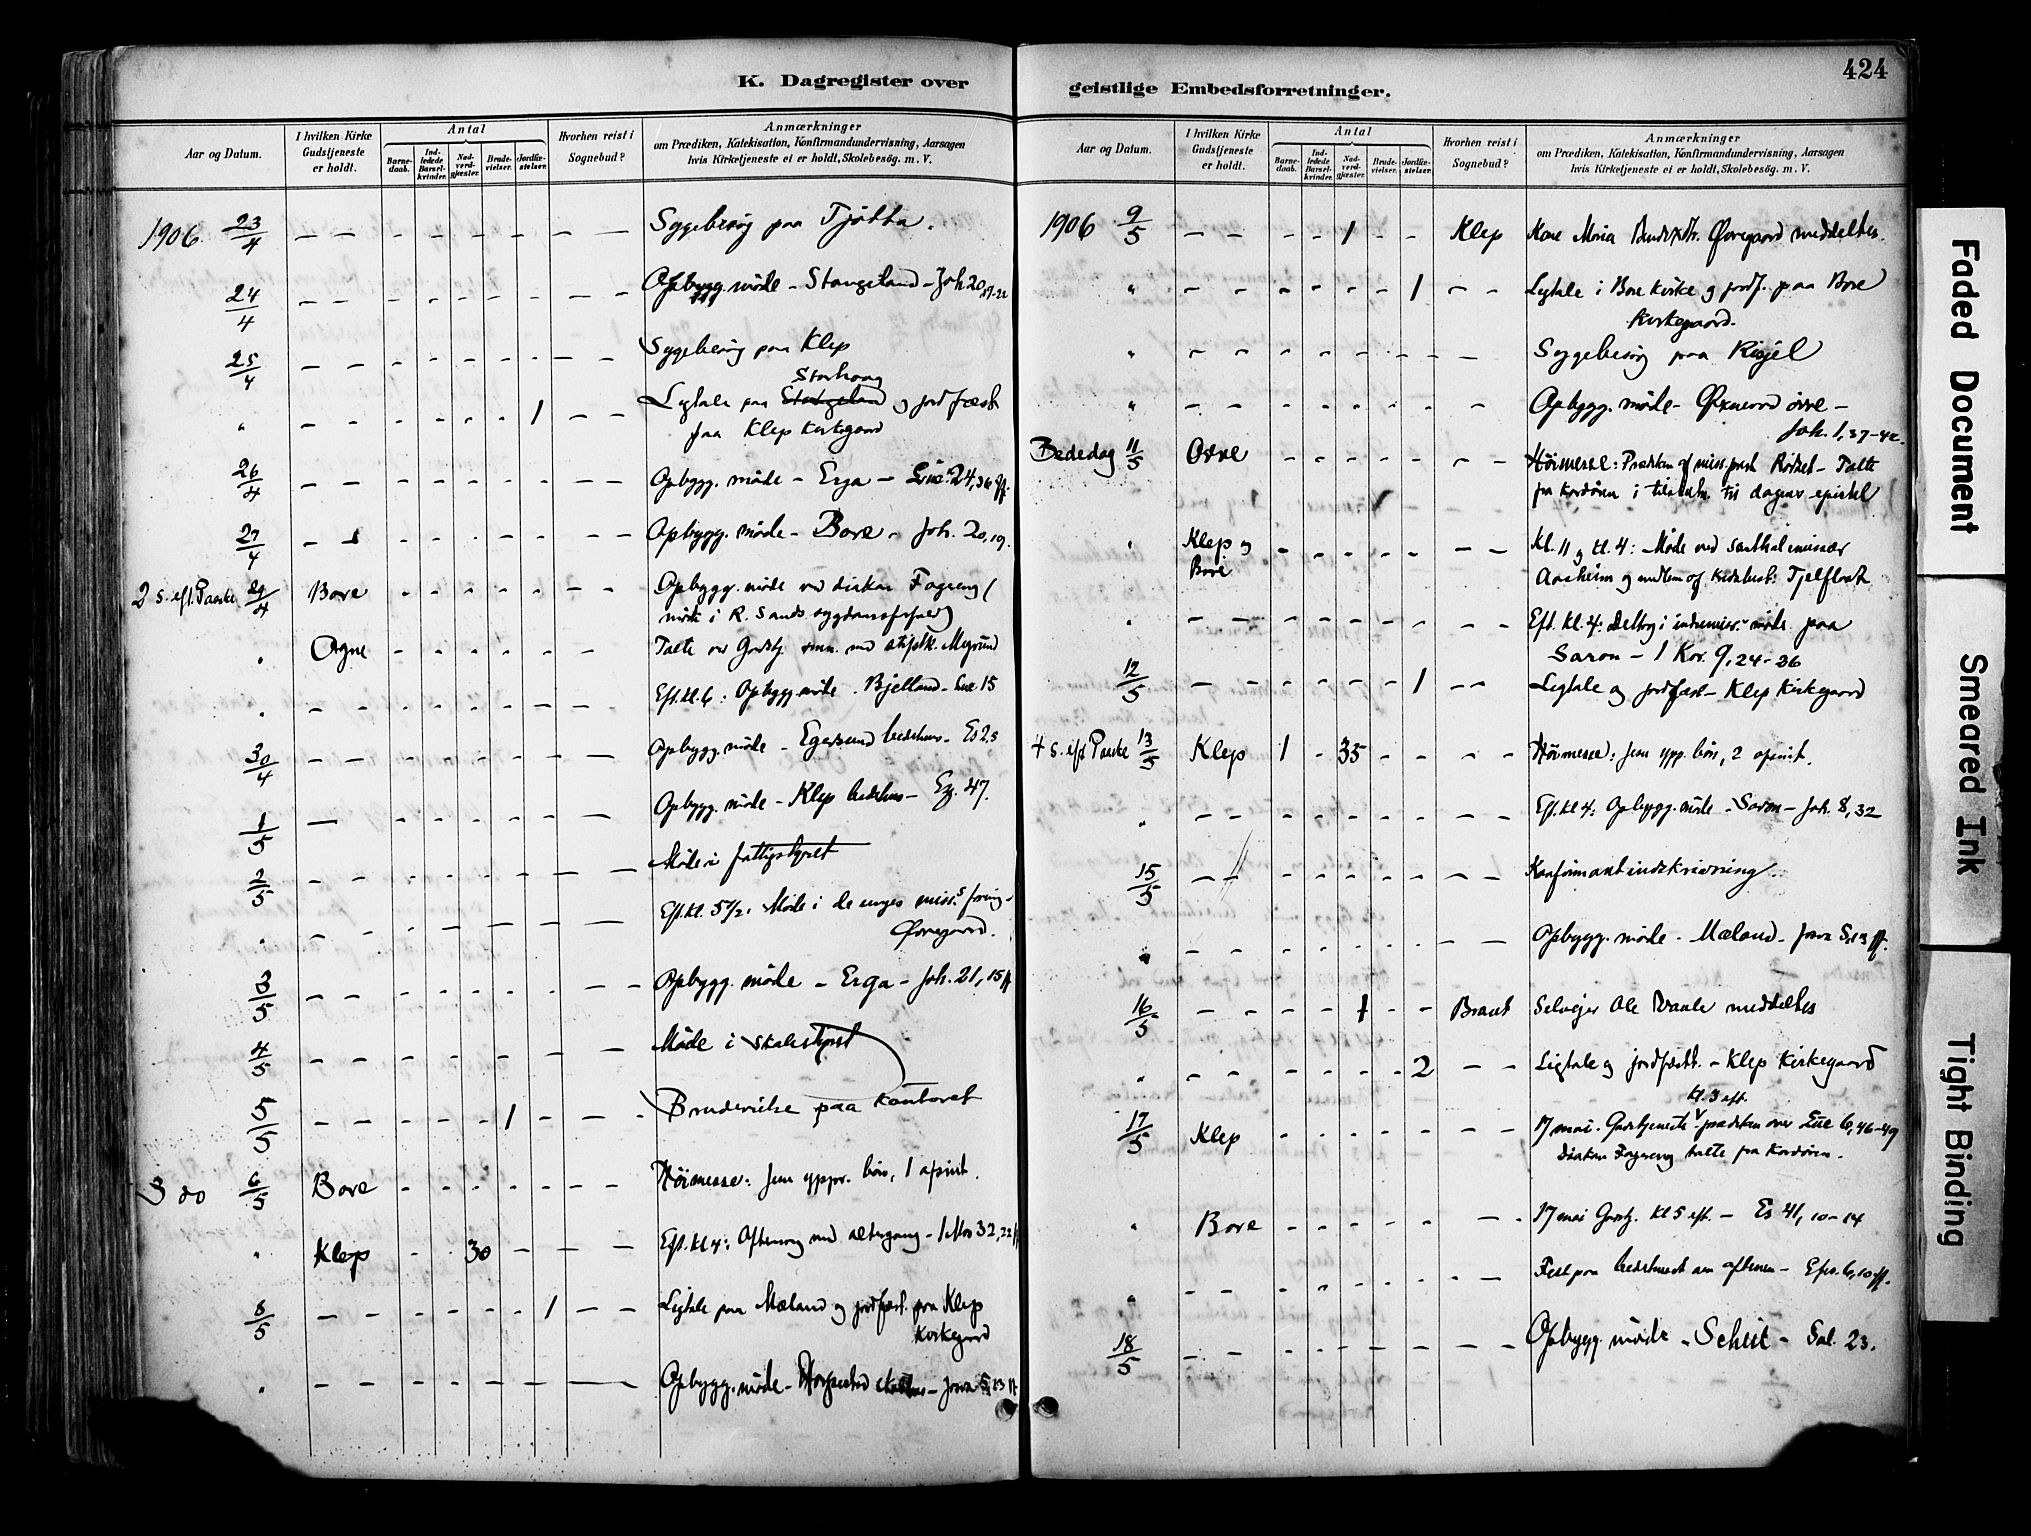 424
K. Dagregister over
geistlige Embedsforretninger.
Aar og Datum.
I hvilken Kirke Gudstjeneste er holdt.
Antal
Barnedaab.
Indledede Barselkvinder.
Nadverdgjæster.
Brudevielser.
Jordfæstelser.
Hvorhen reist i Sognebud?
Anmærkninger
om Prædiken, Katekisation, Konfirmandundervisning, Aarsagen
hvis Kirketjeneste ei er holdt, Skolebesög. m. V.
1906 23/4 - - - - - - - - - Sygebesøg paa Tjøtta.
24/4 - - - - - - - - - Opbygg. møde - Stangeland - Joh 20, 19-21
25/4 - - - - - - - - - Sygebesøg paa Klep
Storhaug
" - - - - - - 1 - - Ligtale paa Stangeland og jordfæst
paa Klep Kirkegaard
26/4 - - - - - - - - - Opbygg. møde - Erga - Luc. 24, 36 ff.
27/4 - - - - - - - - Opbygg. møde - Bore - Joh. 20, 19.
2 s. eft. Paaske 29/4 Bore - - - - - - - Opbygg. møde ved diakon Fagereng (
møde i R. Sands
" Ogne - - - - - - - Talte over
" - - - - - - - - - Eft. kl. 6: Opbygg. møde - Bjelland - Luc 15
30/4 - - - - - - - - - Opbygg. møde - Egersund bedehus - Es 25
1/5 - - - - - - - - Opbygg. møde - Klep bedehus - Ez. 47.
2/5 - - - - - - - - - Møde i fattigstyret
" - - - - - - - - - Eft. kl. 5 1/2: Møde i de unges miss.s foren. -
Øvregaard.
3/5 - - - - - - - - - Opbygg. møde - Erga - Joh. 21, 15 ff
4/5 - - - - - - - - - Møde i skolestyret
5/5 - - - - - 1 - - - Brudevielse paa kontoret
3 do 6/5 Bore - - - - - - - Høimesse: Fem opgv. børn, 1 afsint.
" Klep - - 30 - - - - Eft. kl 4: Aftensang med altergang - 1 Mos 32, 22 ff
8/5 - - - - - - 1 - - Ligtale paa Mæland og jordfæst. paa Klep
Kirkegaard
" - - - - - - - - Opbygg. møde - - Josva 5, 13 ff
Aar og Datum.
I hvilken Kirke Gudstjeneste er holdt.
Antal
Barnedaab.
Indledede Barselkvinder.
Nadverdgjæster.
Brudevielser.
Jordfæstelser.
Hvorhen reist i Sognebud?
Anmærkninger
om Prædiken, Katekisation, Konfirmandundervisning, Aarsagen
hvis Kirketjeneste ei er holdt, Skolebesög. m. V.
1906 9/5 - - - - 1 - - Klep Kone Maria Øvregaard meddeltes.
" - - - - - - 1 - - Ligtale i Bore kirke og jordf. paa Bore
Kirkegaard.
" - - - - - - - - - Sygebesøg paa
" - - - - - - - - Opbygg. møde - Øxnevad øvre -
Joh. 1, 37-42.
Bededag 11/5 Orre - - - - - - - Høimesse: Prædiken af miss.præst - Talte
fra kordøren i tilslutn. til dagens epistel
" Klep og
Bore - - - - - - - Kl. 11 og kl. 4: Møde ved santhalmissær
Aarheim og medlem af Tjelflaat
" - - - - - - - - - Eft. kl. 4: Deltog i indremiss.s møde paa
Saron - 1 Kor. 9, 24-26
12/5 - - - - - - 1 - - Ligtale og jordfæst - Klep Kirkegaard
4 s. eft Paaske 13/5 Klep 1 - 35 - - - - Høimesse: Fem opg. børn, 2 afsint.
" - - - - - - - - - Eft. kl 4: Opbygg. møde - Saron - Joh. 8, 32
15/5 - - - - - - - - - Konfirmantindskrivning.
" - - - - - - - - - Opbygg. møde - Mæland - Josva 5, 13 ff.
16/5 - - - - 1 - - Braut Selvejer Ole meddeltes
" - - - - - - 2 - - Ligtale og jordfæst. - Klep Kirkegaard
kl. 3 eft.
17/5 Klep - - - - - - - 17 mai. Gudstjeneste prædiken over Luc 6, 46-49
Diakon Fagereng talte fra Kordøren.
" Bore - - - - - - - 17 mai Gudstj. kl 5 eft. - Es 41, 10-14
" - - - - - - - - - Fest paa bedehuset om aftenen - Efes. 6, 10 ff.
18/5 - - - - - - - - - Opbygg. møde - - Sal. 23.
Faded Document
Smeared Ink
Tight Binding